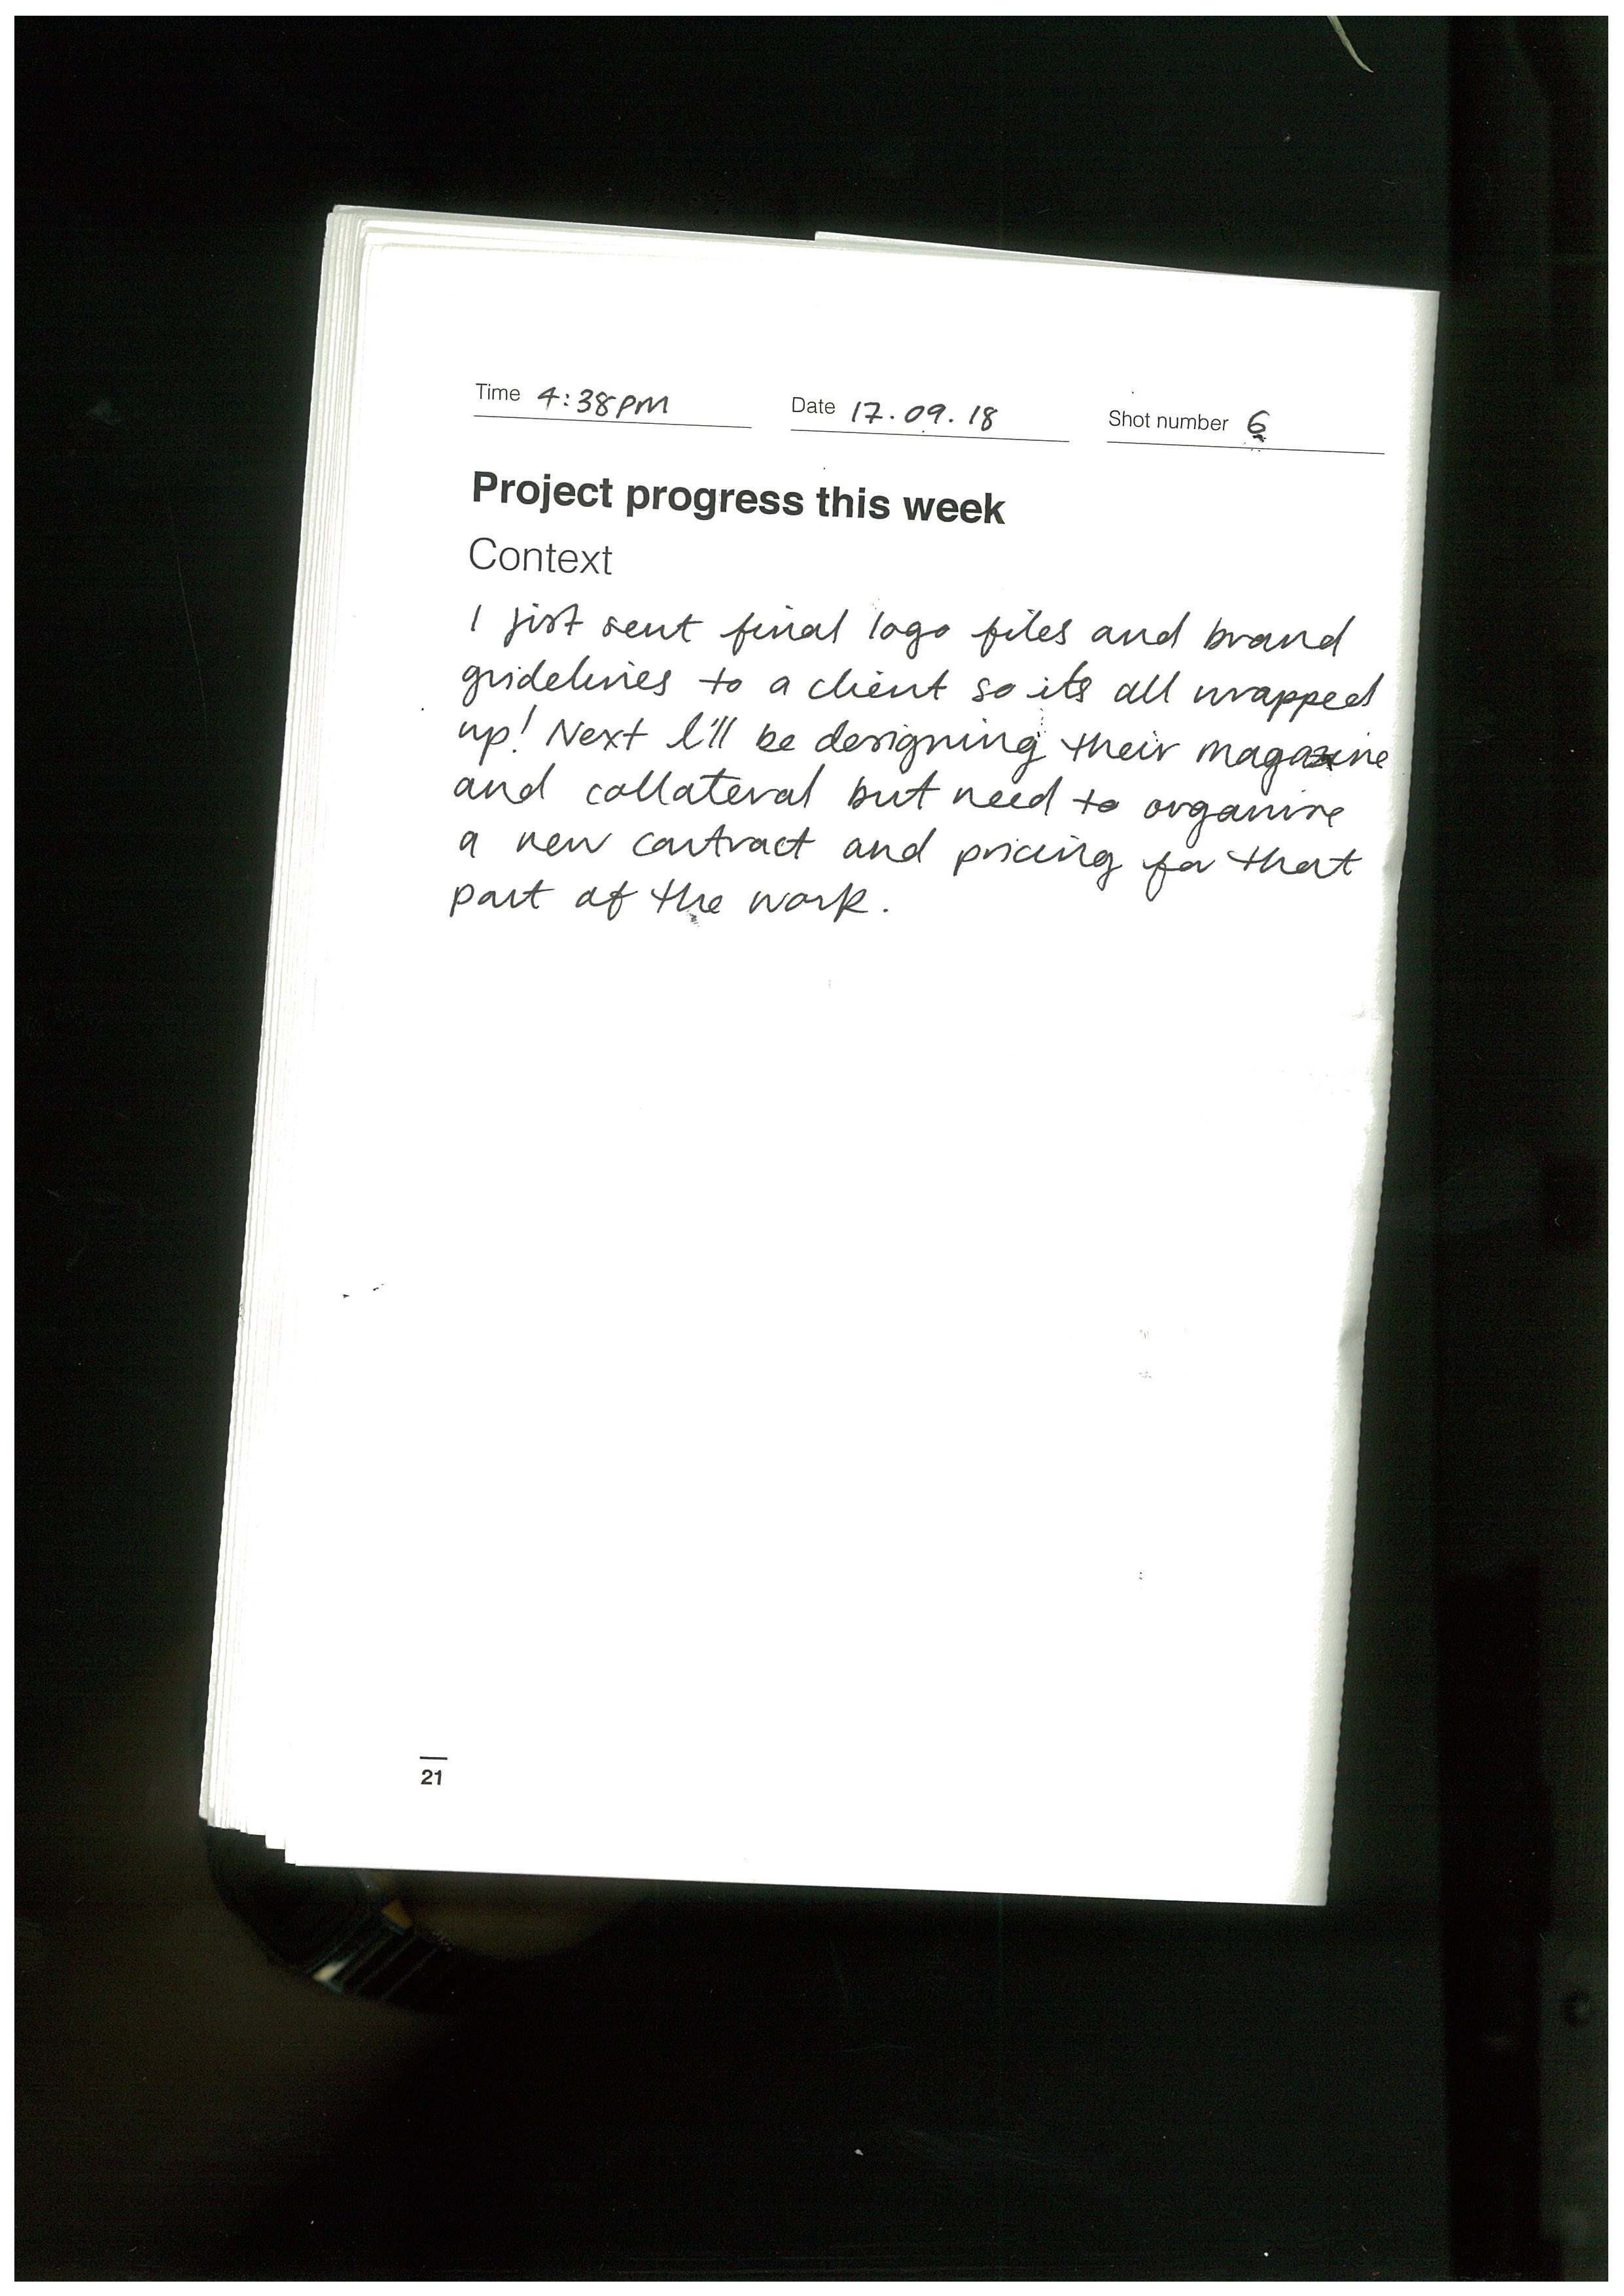 Time 4:38PM Date 17.09.18 Shot number 6
Project progress this week
Context
I just sent final logo files and brand
guidelines to a client so its all wrapped
up! Next I'll be designing their magazine
and collateral but need to organise
a new contract and pricing for that
part of the work.
21